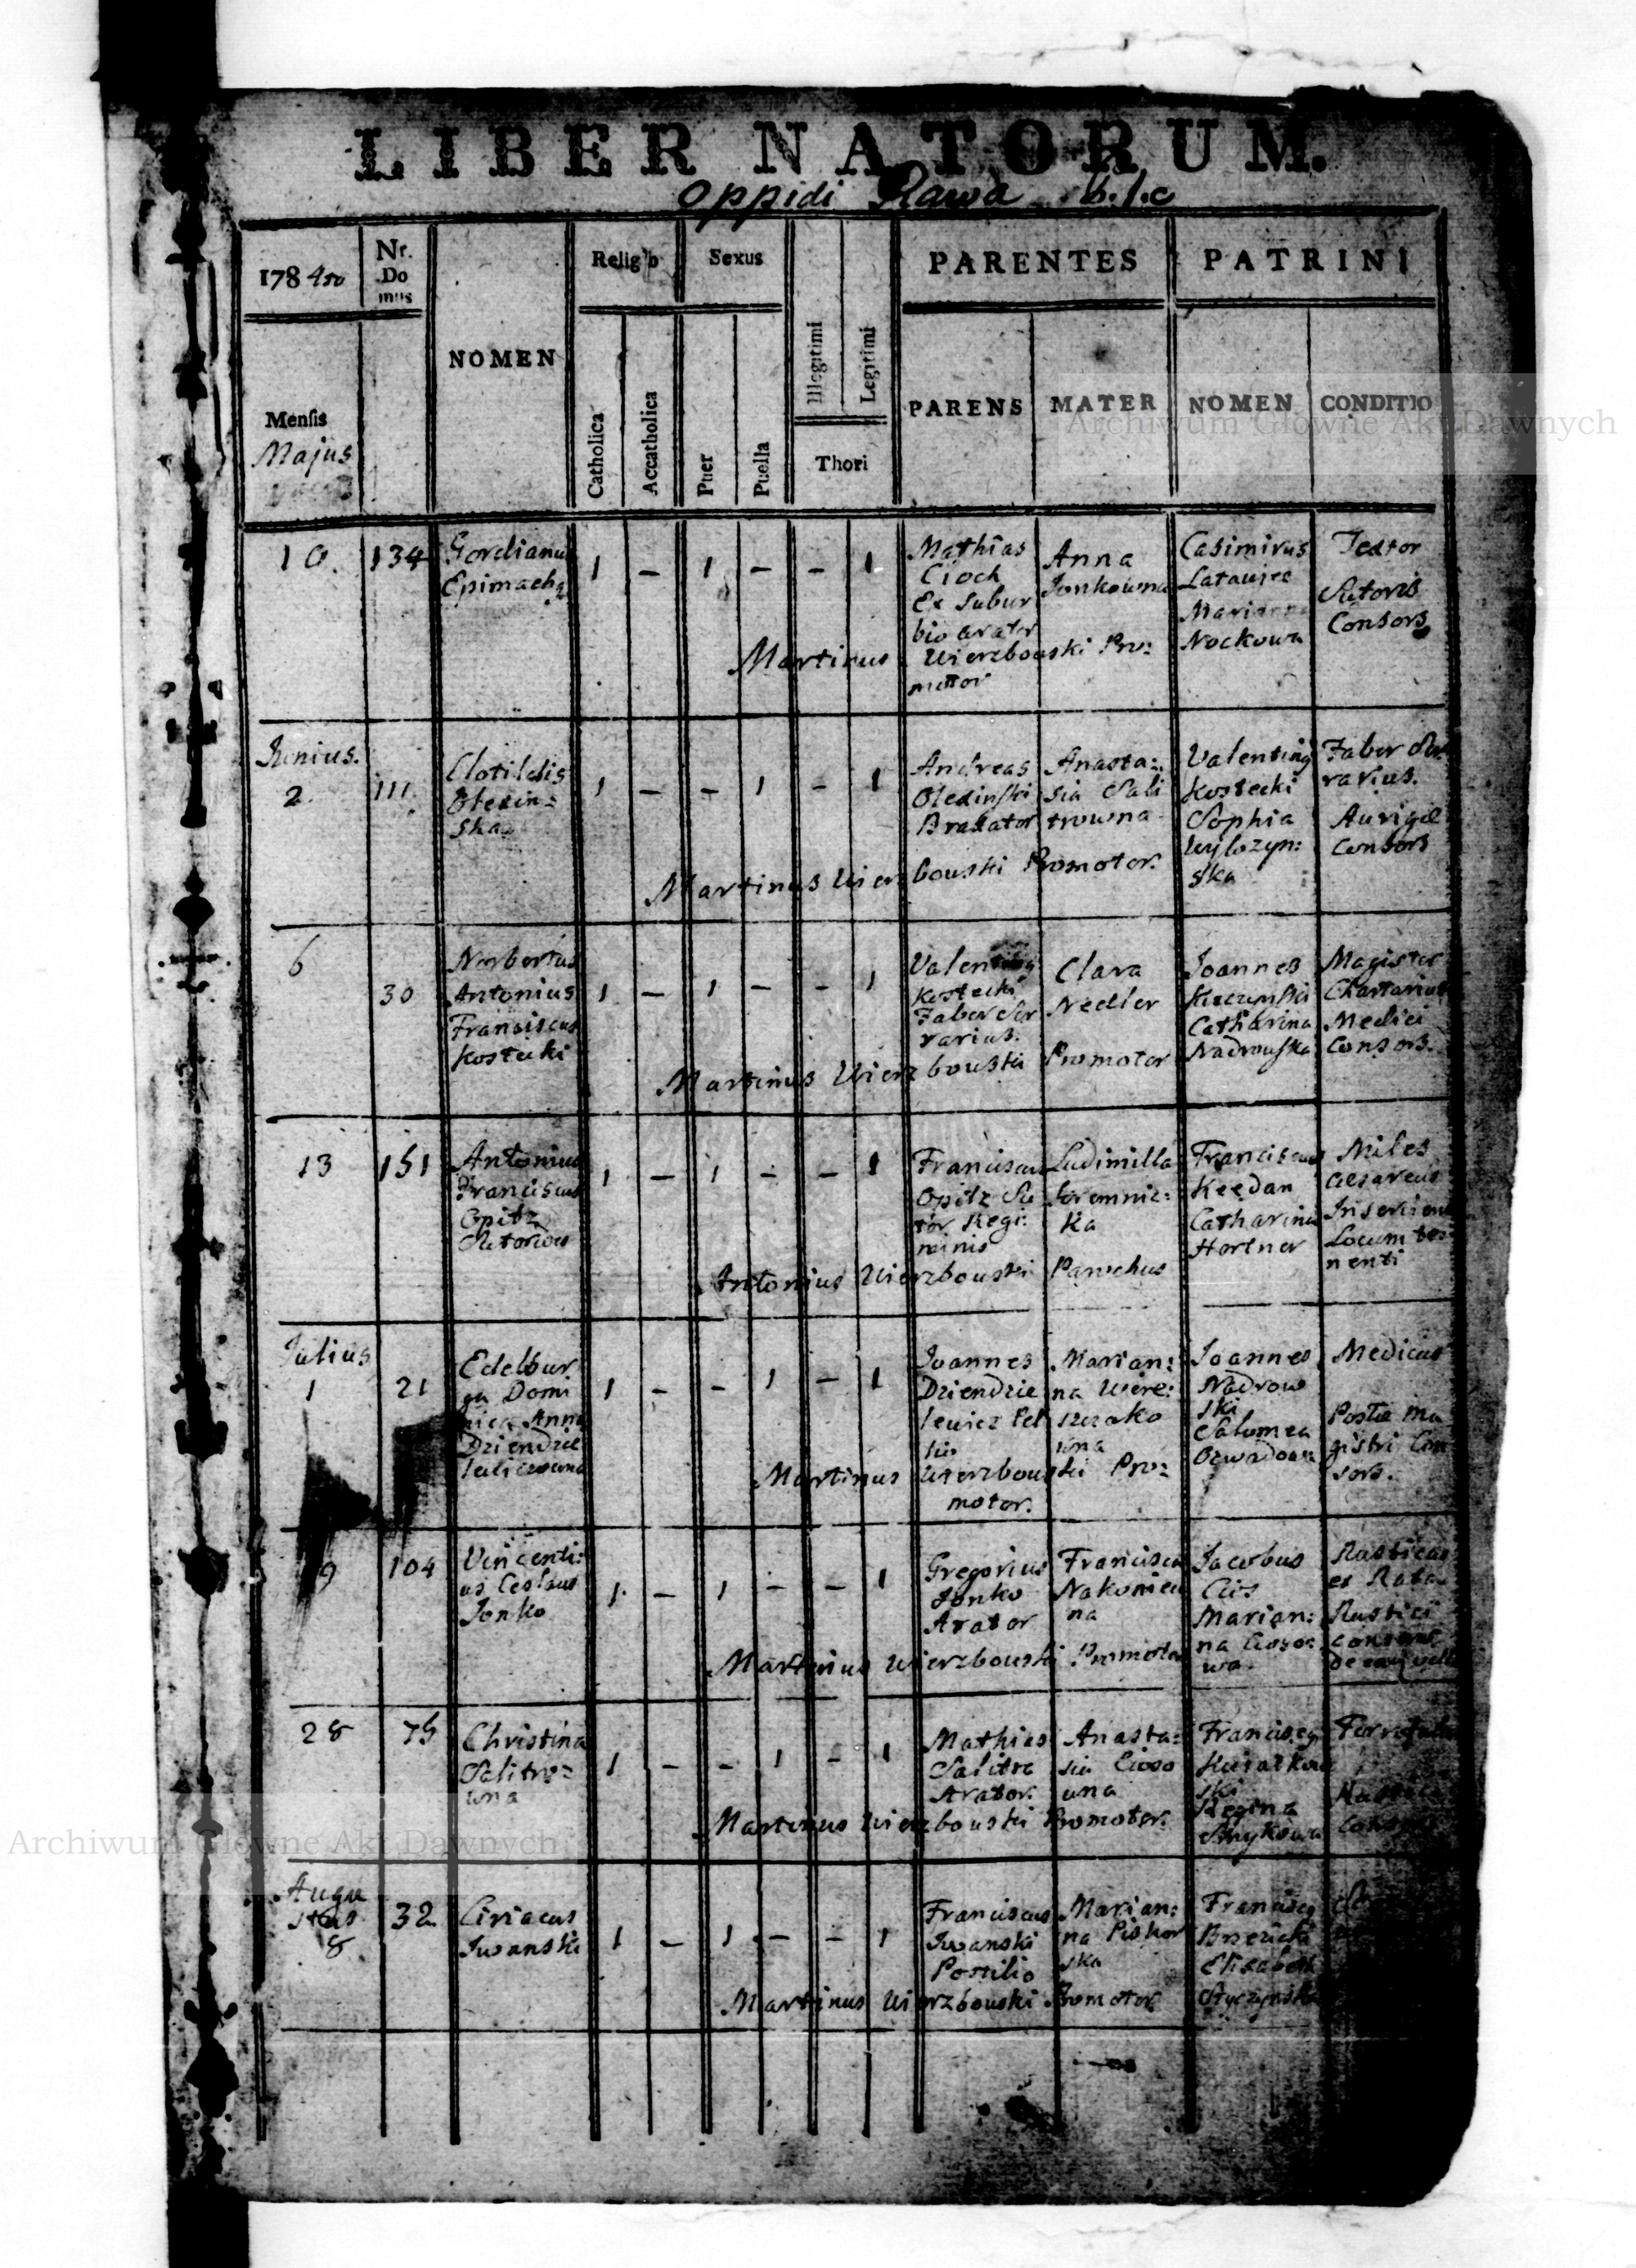 LIBER NATORUM.
Oppidi Rawa
178 4to
Nr. Domus
NOMEN
Relig
Sexus
PARENTES
PATRINI
Mensis
Majus
Catholica
Accatholica
Puer
Puella
Illegitimi
Legitimi
Thori
PARENS
MATER
NOMEN
CONDITIO
10. 134
Gordianus
1 — 1 — — 1
Mathias
Cioch
Ex Subur
bio arator
Anna
Jonkowna
Casimirus
Marianna
Nockowa
Textor
Sutoris
Consors
Martinus Wierzbowski Pro:
motor
Junius.
2. 111.
Clotildis
Olexin:
ska
1 — — 1 — 1
Andreas
Olexinski
Braxator
Anasta:
sia Sali
trowna
Valentinus
Kostecki
Sophia
ska
Faber Ser
rarius.
Aurigæ
Consors
Martinus Wierzbowski Promotor.
6 30
Norbertus
Antonius
Franciscus
Kostecki
1 — 1 — — 1
Valentinus
Kostecki
Faber Ser
rarius.
Clara
Nedler
Joannes
Catharina
Nadrowska
Magister
Chartarius
Medici
Consors.
Martinus Wierzbowski Promotor
13 151
Antonius
Franciscus
Opitz
1 — 1 — — 1
Franciscus
Opitz Su
tor Regi:
minis
Ludimilla
ka
Franciscus
Keedan
Catharina
Hortner
Miles
Cæsareus
Inserviens
Locum te:
nenti
Antonius Wierzbowski Parochus
Julius
1 21
Edelbur
ga Domi
nica Anna
Dziendzie
lewiczowna
1 — — 1 — 1
Joannes
Dziendzie
lewicz Pel
lio
Marian:
na Were:
szczako
wna
Joannes
Nadrow
ski
Salomea
Medicus
Postæ Ma
gistri Con
sors.
Martinus Wierzbowski Pro:
motor.
19 104
Vincenti:
us Ceslaus
Jonko
1. — 1 — — 1
Gregorius
Jonko
Arator
Francisca
Nakoniecz
na
Jacobus
Cios
Marian:
na Cioso:
wa
Rusticus
ex Rata
Rustici
Consors
de eadem villa
Martinus Wierzbowski Promotor
28 75
Christina
Salitro:
wna
1 — — 1 — 1
Mathias
Salitra
Arator.
Anasta:
sia Cioso
wna
Franciscus
ski
Regina
Smykowa
Martinus Wierzbowski Promotor.
Augu
stus
8 32
Ciriacus
Iwanski
1 — 1 — — 1
Franciscus
Iwanski
Postilio
Marian:
na Piskor
ska
Franciscus
Brzezicki
Elisabeth
Styczynska
Martinus Wierzbowski Promotor
Archiwum Główne Akt Dawnych
Archiwum Główne Akt Dawnych